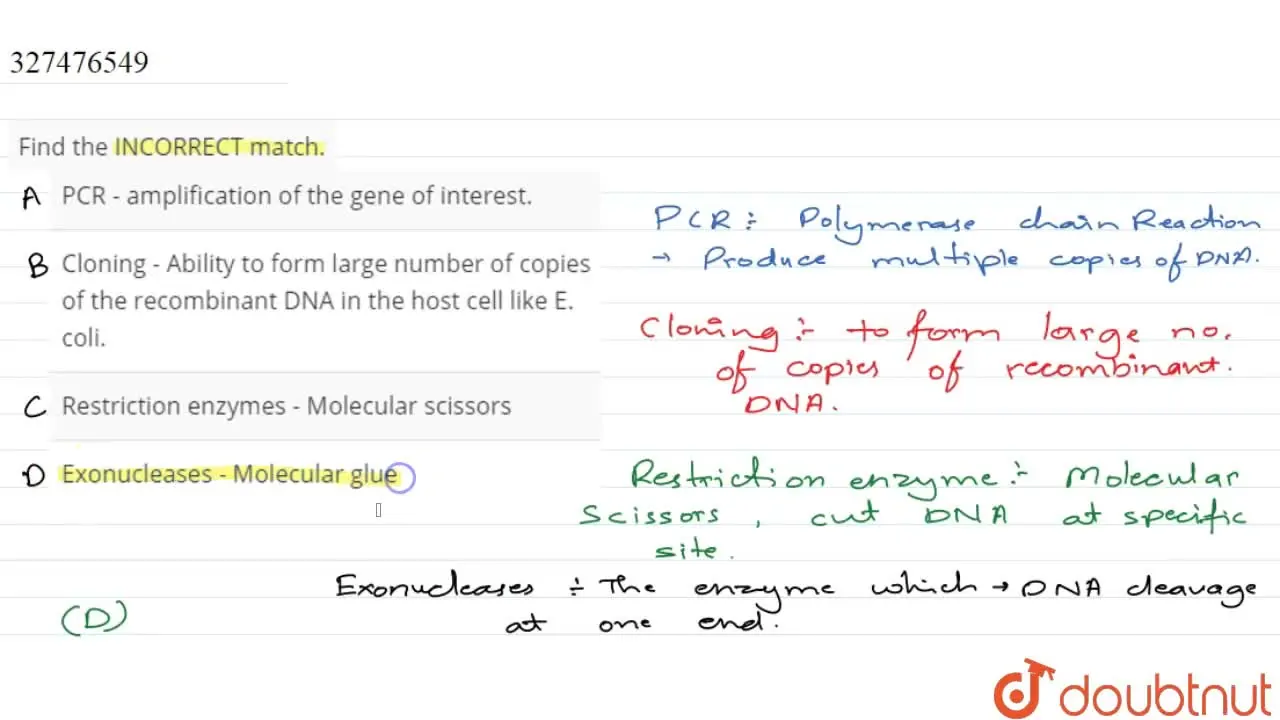 327476549
Find the INCORRECT match.
A PCR - amplification of the gene of interest.
B Cloning - Ability to form large number of copies
of the recombinant DNA in the host cell like E.
coli.
C Restriction enzymes - Molecular scissors
D Exonucleases - Molecular glue
PCR ÷ Polymerase chain Reaction
→ Produce multiple copies of DNA.
Cloning ÷ to form large no.
of copies of recombinant.
DNA.
Restriction enzyme ÷ Molecular
Scissors, cut DNA at specific
site.
Exonucleases ÷ The enzyme which → DNA cleavage
at one end.
(D)
doubtnut